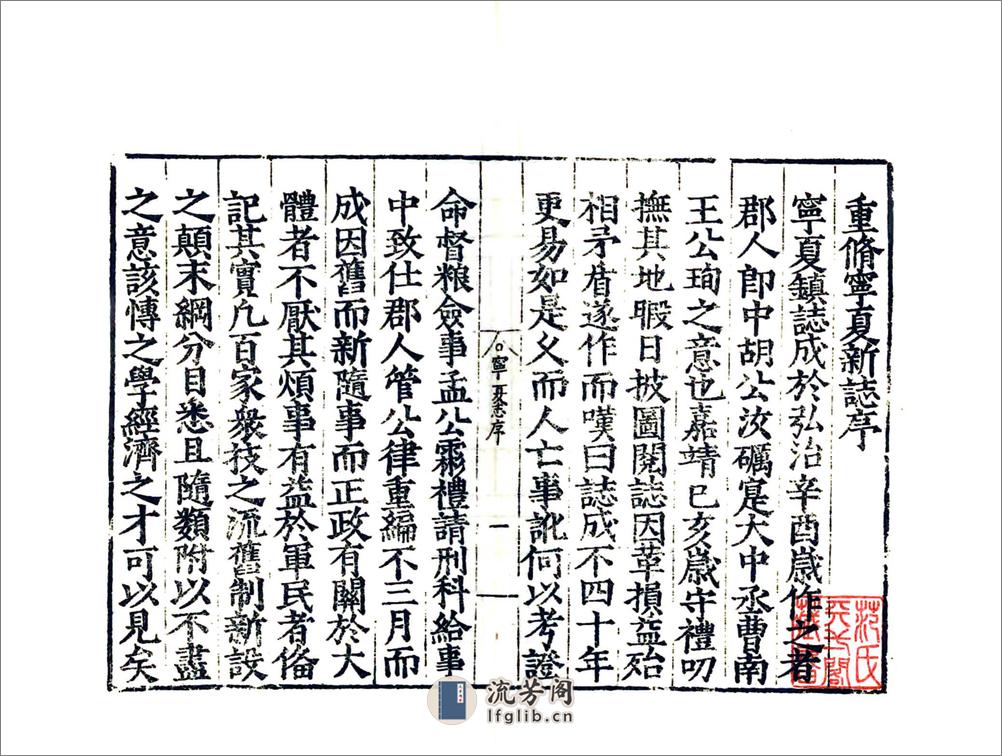 重脩寧夏新誌序
寧夏鎮誌成於弘治辛酉歲作之者
郡人郎中胡公汝礪寔大中丞曹南
王公珣之意也嘉靖己亥歲守禮叨
撫其地暇日披圖閱誌因革損益殆
相矛盾遂作而嘆曰誌成不四十年
更易如是久而人亡事訛何以考證
寧夏志序
一
命督粮僉事孟公霦禮請刑科給事
中致仕郡人管公律重編不三月而
成因舊而新隨事而正政有關於大
體者不厭其煩事有益於軍民者俻
記其實凡百家衆技之流舊制新設
之顛末綱分目悉且隨類附以不盡
之意該愽之學經濟之才可以見矣
范氏天一閣藏書
流芳阁
lfglib.cn